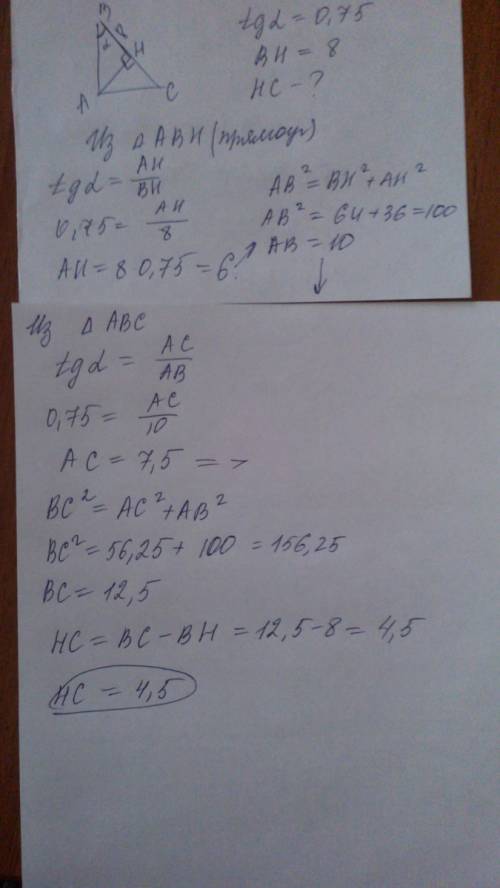 B
α
H
A
C
tgα = 0,75
BH = 8
HC - ?
Из △ ABH (прямоуг)
tgα = AH/BH
0,75 = AH/8
AH = 8 0,75 = 6
AB² = BH² + AH²
AB² = 64 + 36 = 100
AB = 10
Из △ ABC
tgα = AC/AB
0,75 = AC/10
AC = 7,5 =>
BC² = AC² + AB²
BC² = 56,25 + 100 = 156,25
BC = 12,5
HC = BC - BH = 12,5 - 8 = 4,5
HC = 4,5